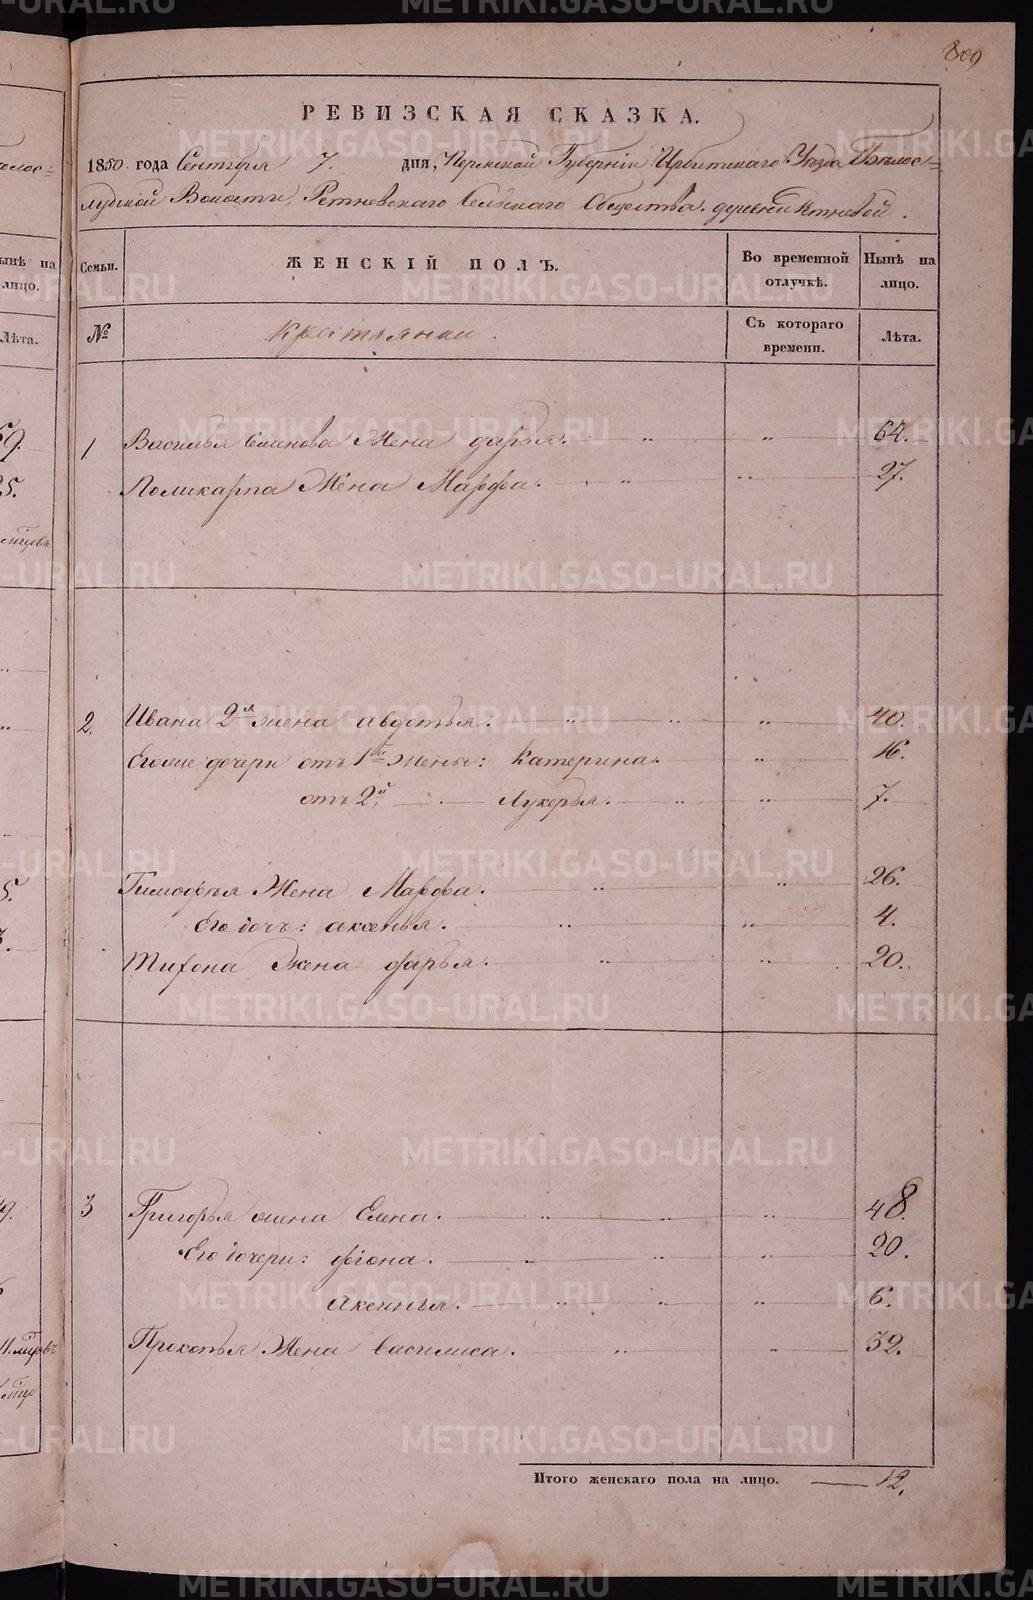 809
РЕВИЗСКАЯ СКАЗКА.
1850 года Сентября 7. дня, Пермской Губерніи Ирбитскаго Уезда Бѣлос-
лудской Волости, Ретневскаго Сельскаго Общества. деревни Ретневой.
Семьи. ЖЕНСКІЙ ПОЛЪ. Во временной отлучкѣ. Нынѣ на лицо.
№ Крестьянки. Съ котораго времени. Лѣта.
1 Василья Семенова Жена дарья. 64.
Поликарпа Жена Марфа. 27.
2. Ивана 2я жена авдотья. 40.
Его же дочери отъ 1й Жены: Катерина. 16.
отъ 2й Лукерья. 7.
Тимофея Жена Марфа. 26.
Его дочь: аксенья. 4.
Тихона Жена дарья. 20.
3 Григорья жена Елена. 48.
Его дочери: фіона. 20.
Аксинья. 6.
Прокопья Жена василиса. 32.
Итого женскаго пола на лицо. 12.
METRIKI.GASO-URAL.RU